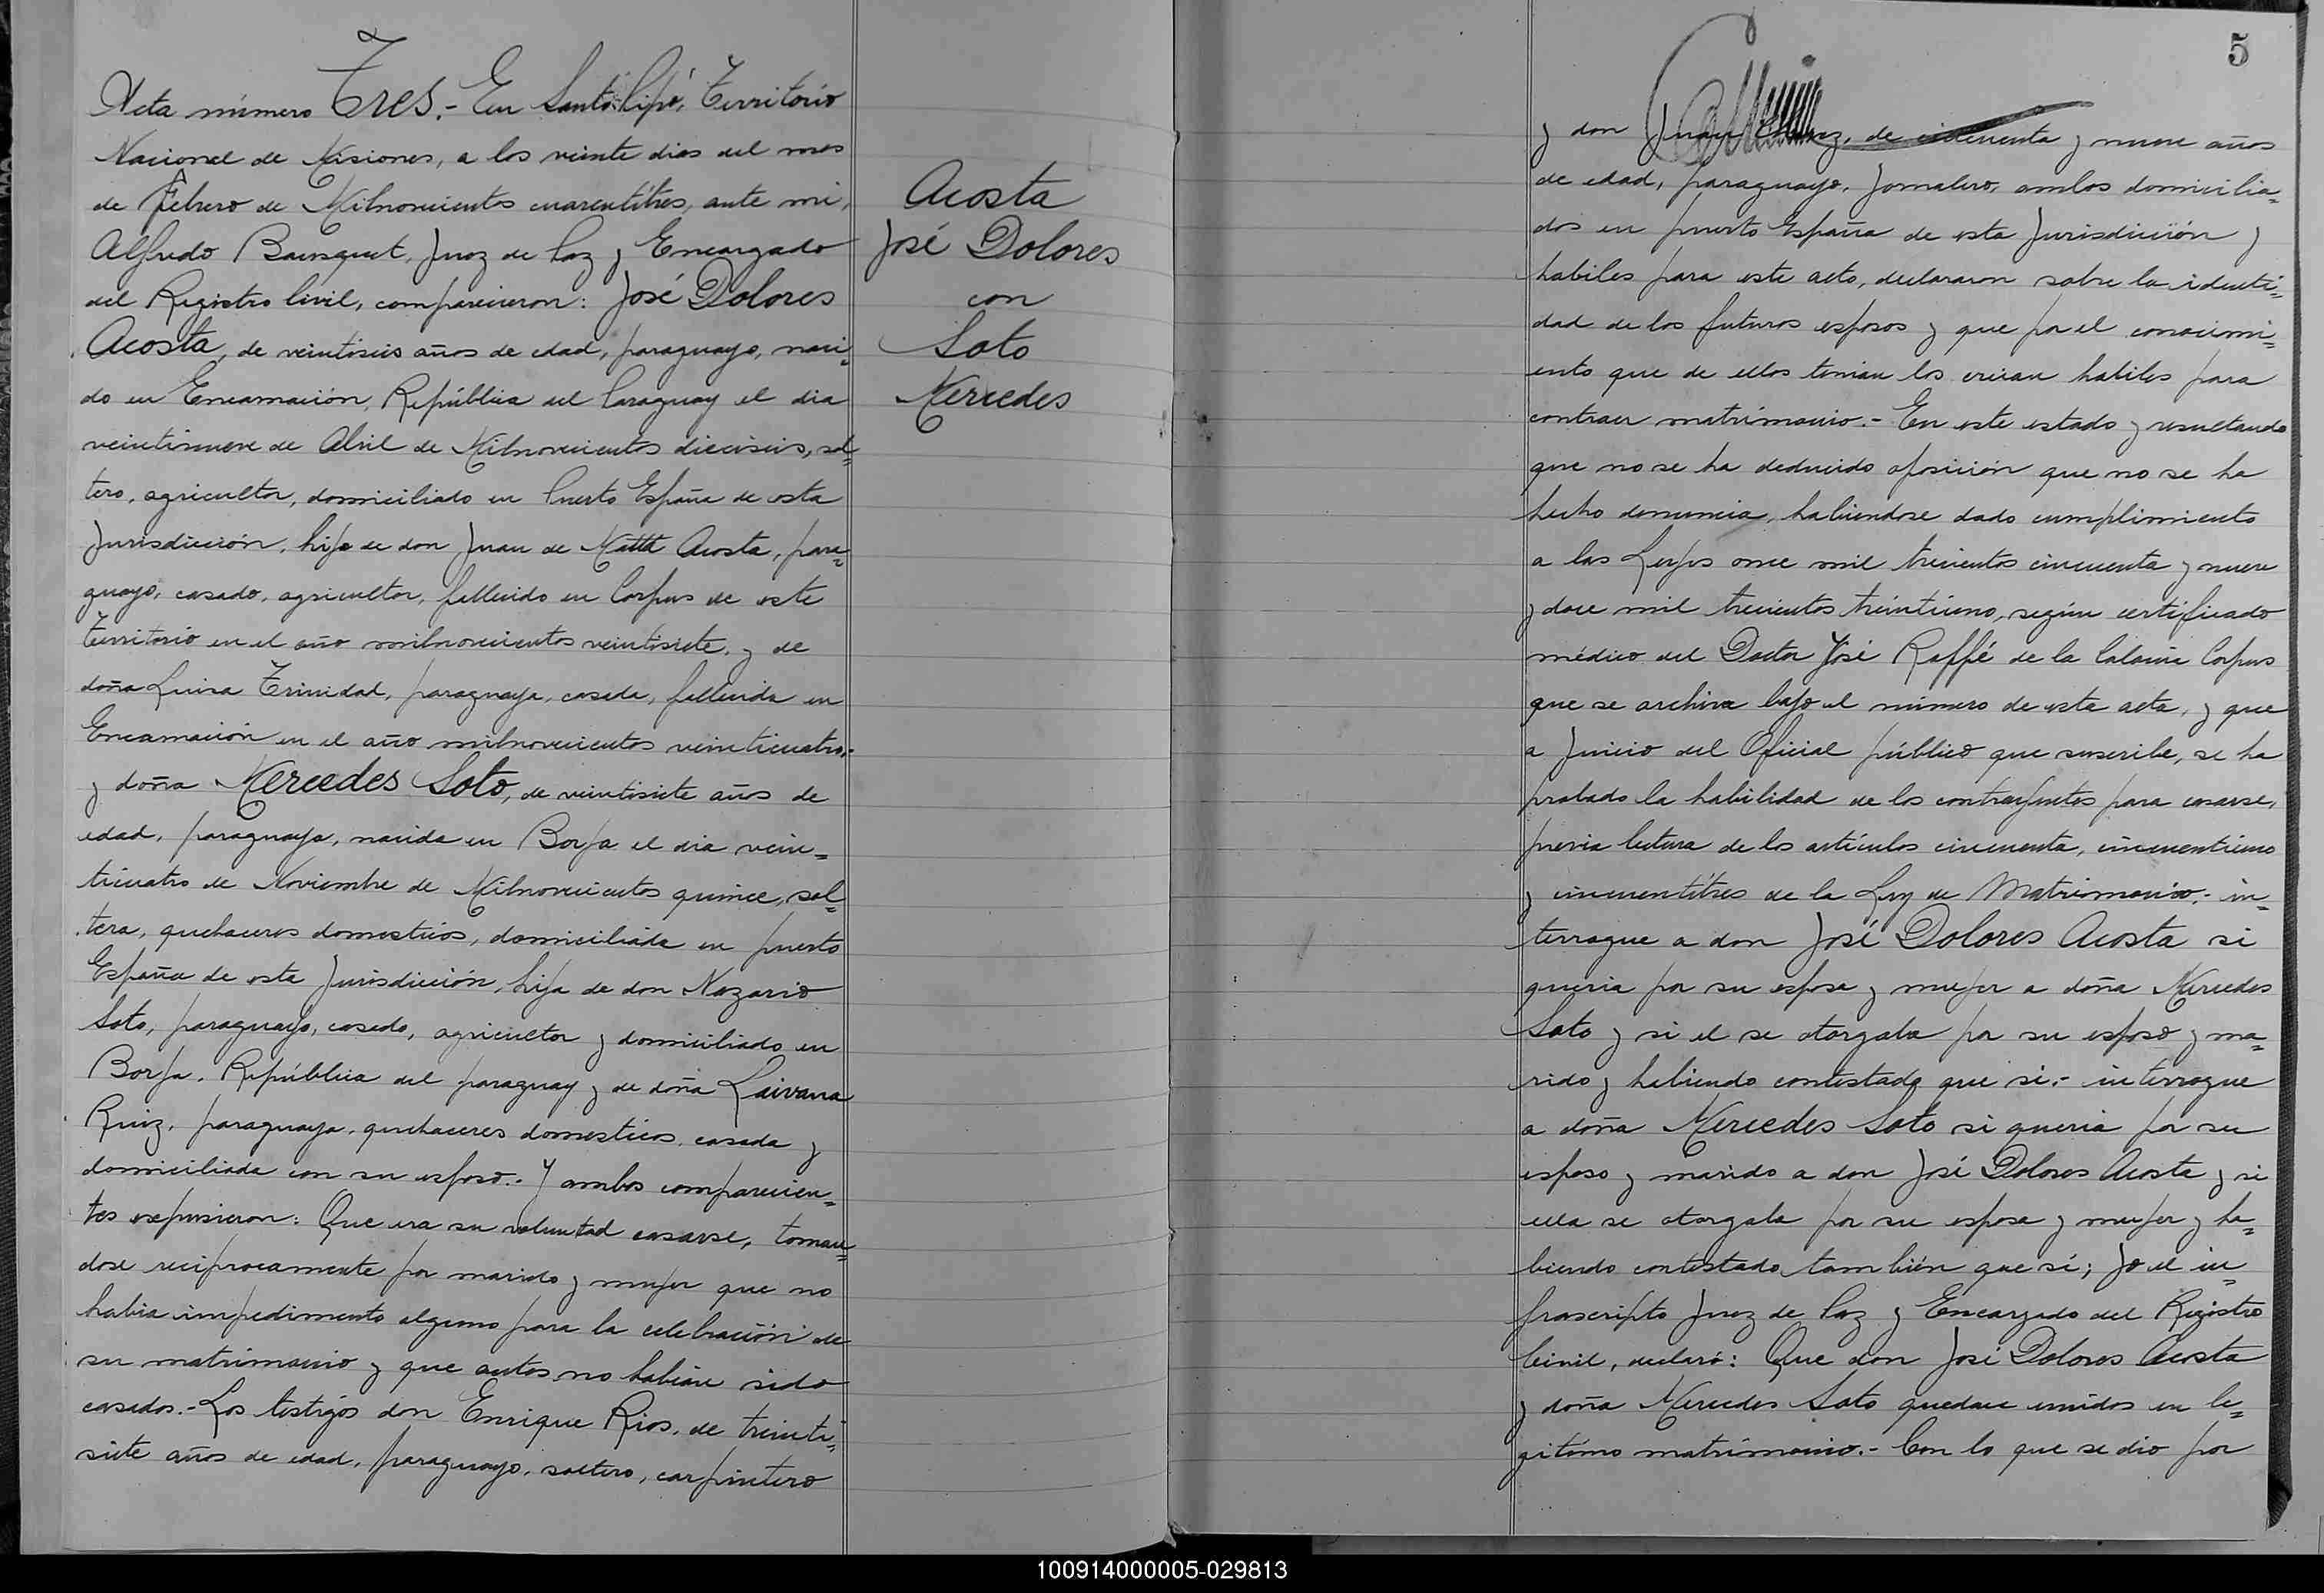 Acta número Tres.- En Santo Pipó, Territorio
Nacional de Misiones, a los veinte dias del mes
de Febrero de Milnovecientos cuarentitres, ante mi,
Alfredo Juez de Paz y Encargado
del Registro Civil, comparecieron: José Dolores
Acosta, de veintiseis años de edad, paraguayo, naci=
do en Encarnación, República del Paraguay el dia
veintinueve de Abril de Milnovecientos dieciseis, sol=
tero, agricultor, domiciliado en Puerto España de esta
Jurisdicción, hijo de don Juan de Matta Acosta, para=
guayo, casado, agricultor, fallecido en Corpus de este
Territorio en el año milnovecientos veintisiete, y de
doña Luisa Trinidad, paraguaya, casada, fallecida en
Encarnación en el año milnovecientos veinticuatro;-
y doña Mercedes Soto, de veintisiete años de
edad, paraguaya, nacida en Borja el dia vein=
ticuatro de Noviembre de Milnovecientos quince, sol=
tera, quehaceres domesticos, domiciliada en puerto
España de esta Jurisdicción, hija de don Nazario
Soto, paraguayo, casado, agricultor y domiciliado en
Borja, República del paraguay y de doña
Ruiz, paraguaya, quehaceres domesticos, casada y
domiciliada con su esposo.- Y ambos comparecien=
tes expusieron: Que era su voluntad casarse, toman=
dose reciprocamente por marido y mujer que no
habia impedimento alguno para la celebración de
su matrimonio y que antes no habian sido
casados.- Los testigos don Enrique Rios, de treinti=
siete años de edad, paraguayo, soltero, carpintero
Acosta
José Dolores
con
Soto
Mercedes
5
y don Juan de cincuenta y nueve años
de edad, paraguayo, Jornalero, ambos domicilia=
dos en puerto España de esta Jurisdicción y
habiles para este acto, declararon sobre la identi=
dad de los futuros esposos y que por el conocimi=
ento que de ellos tenian los creian habiles para
contraer matrimonio.- En este estado y resultando
que no se ha deducido oposición que no se ha
hecho denuncia, habiendose dado cumplimiento
a las Leyes once mil trecientos cincuenta y nueve
y doce mil trecientos treintiuno, según certificado
médico del Doctor José Raffé de la Colonia Corpus
que se archiva bajo el número de esta acta, y que
a Juicio del Oficial público que suscribe, se ha
probado la habilidad de los contrayentes para casarse,
previa lectura de los artículos cincuenta, cincuentiuno
y cincuentitres de la Ley de Matrimonio.- in=
terrogue a don José Dolores Acosta si
queria por su esposa y mujer a doña Mercedes
Soto y si el se otorgaba por su esposo y ma=
rido y habiendo contestado que si.- interrogue
a doña Mercedes Soto si queria por su
esposo y marido a don José Dolores Acosta y si
ella se otorgaba por su esposa y mujer y ha=
biendo contestado también que si; Yo el in=
frascripto Juez de Paz y Encargado del Registro
Civil, declaró: Que don José Dolores Acosta
y doña Mercedes Soto quedan unidos en le=
gitimo matrimonio.- Con lo que se dio por
100914000005-029813